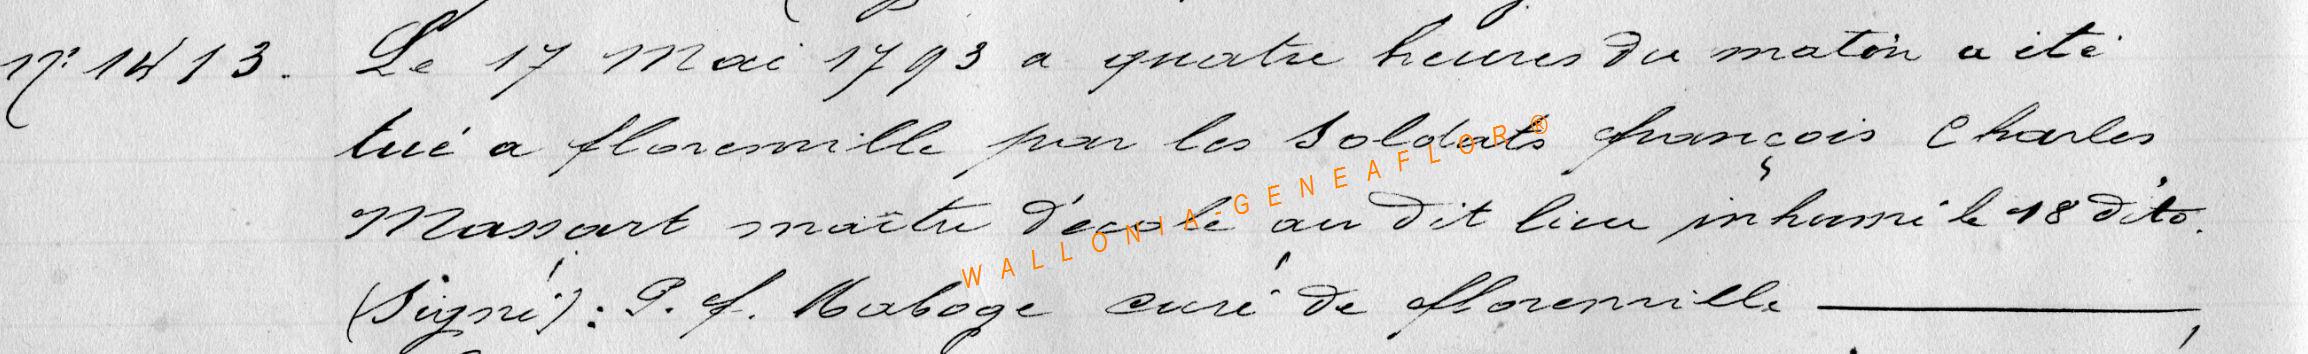 N° 1413. Le 17 Mai 1793 a quatre heures du matin a été
tué a florenville par les soldats françois Charles
Massart maître d'école au dit lieu inhumé le 18 dito.
(Signé): P. f. Maboge curé de florenville
WALLONIA-GENEAFLOR®